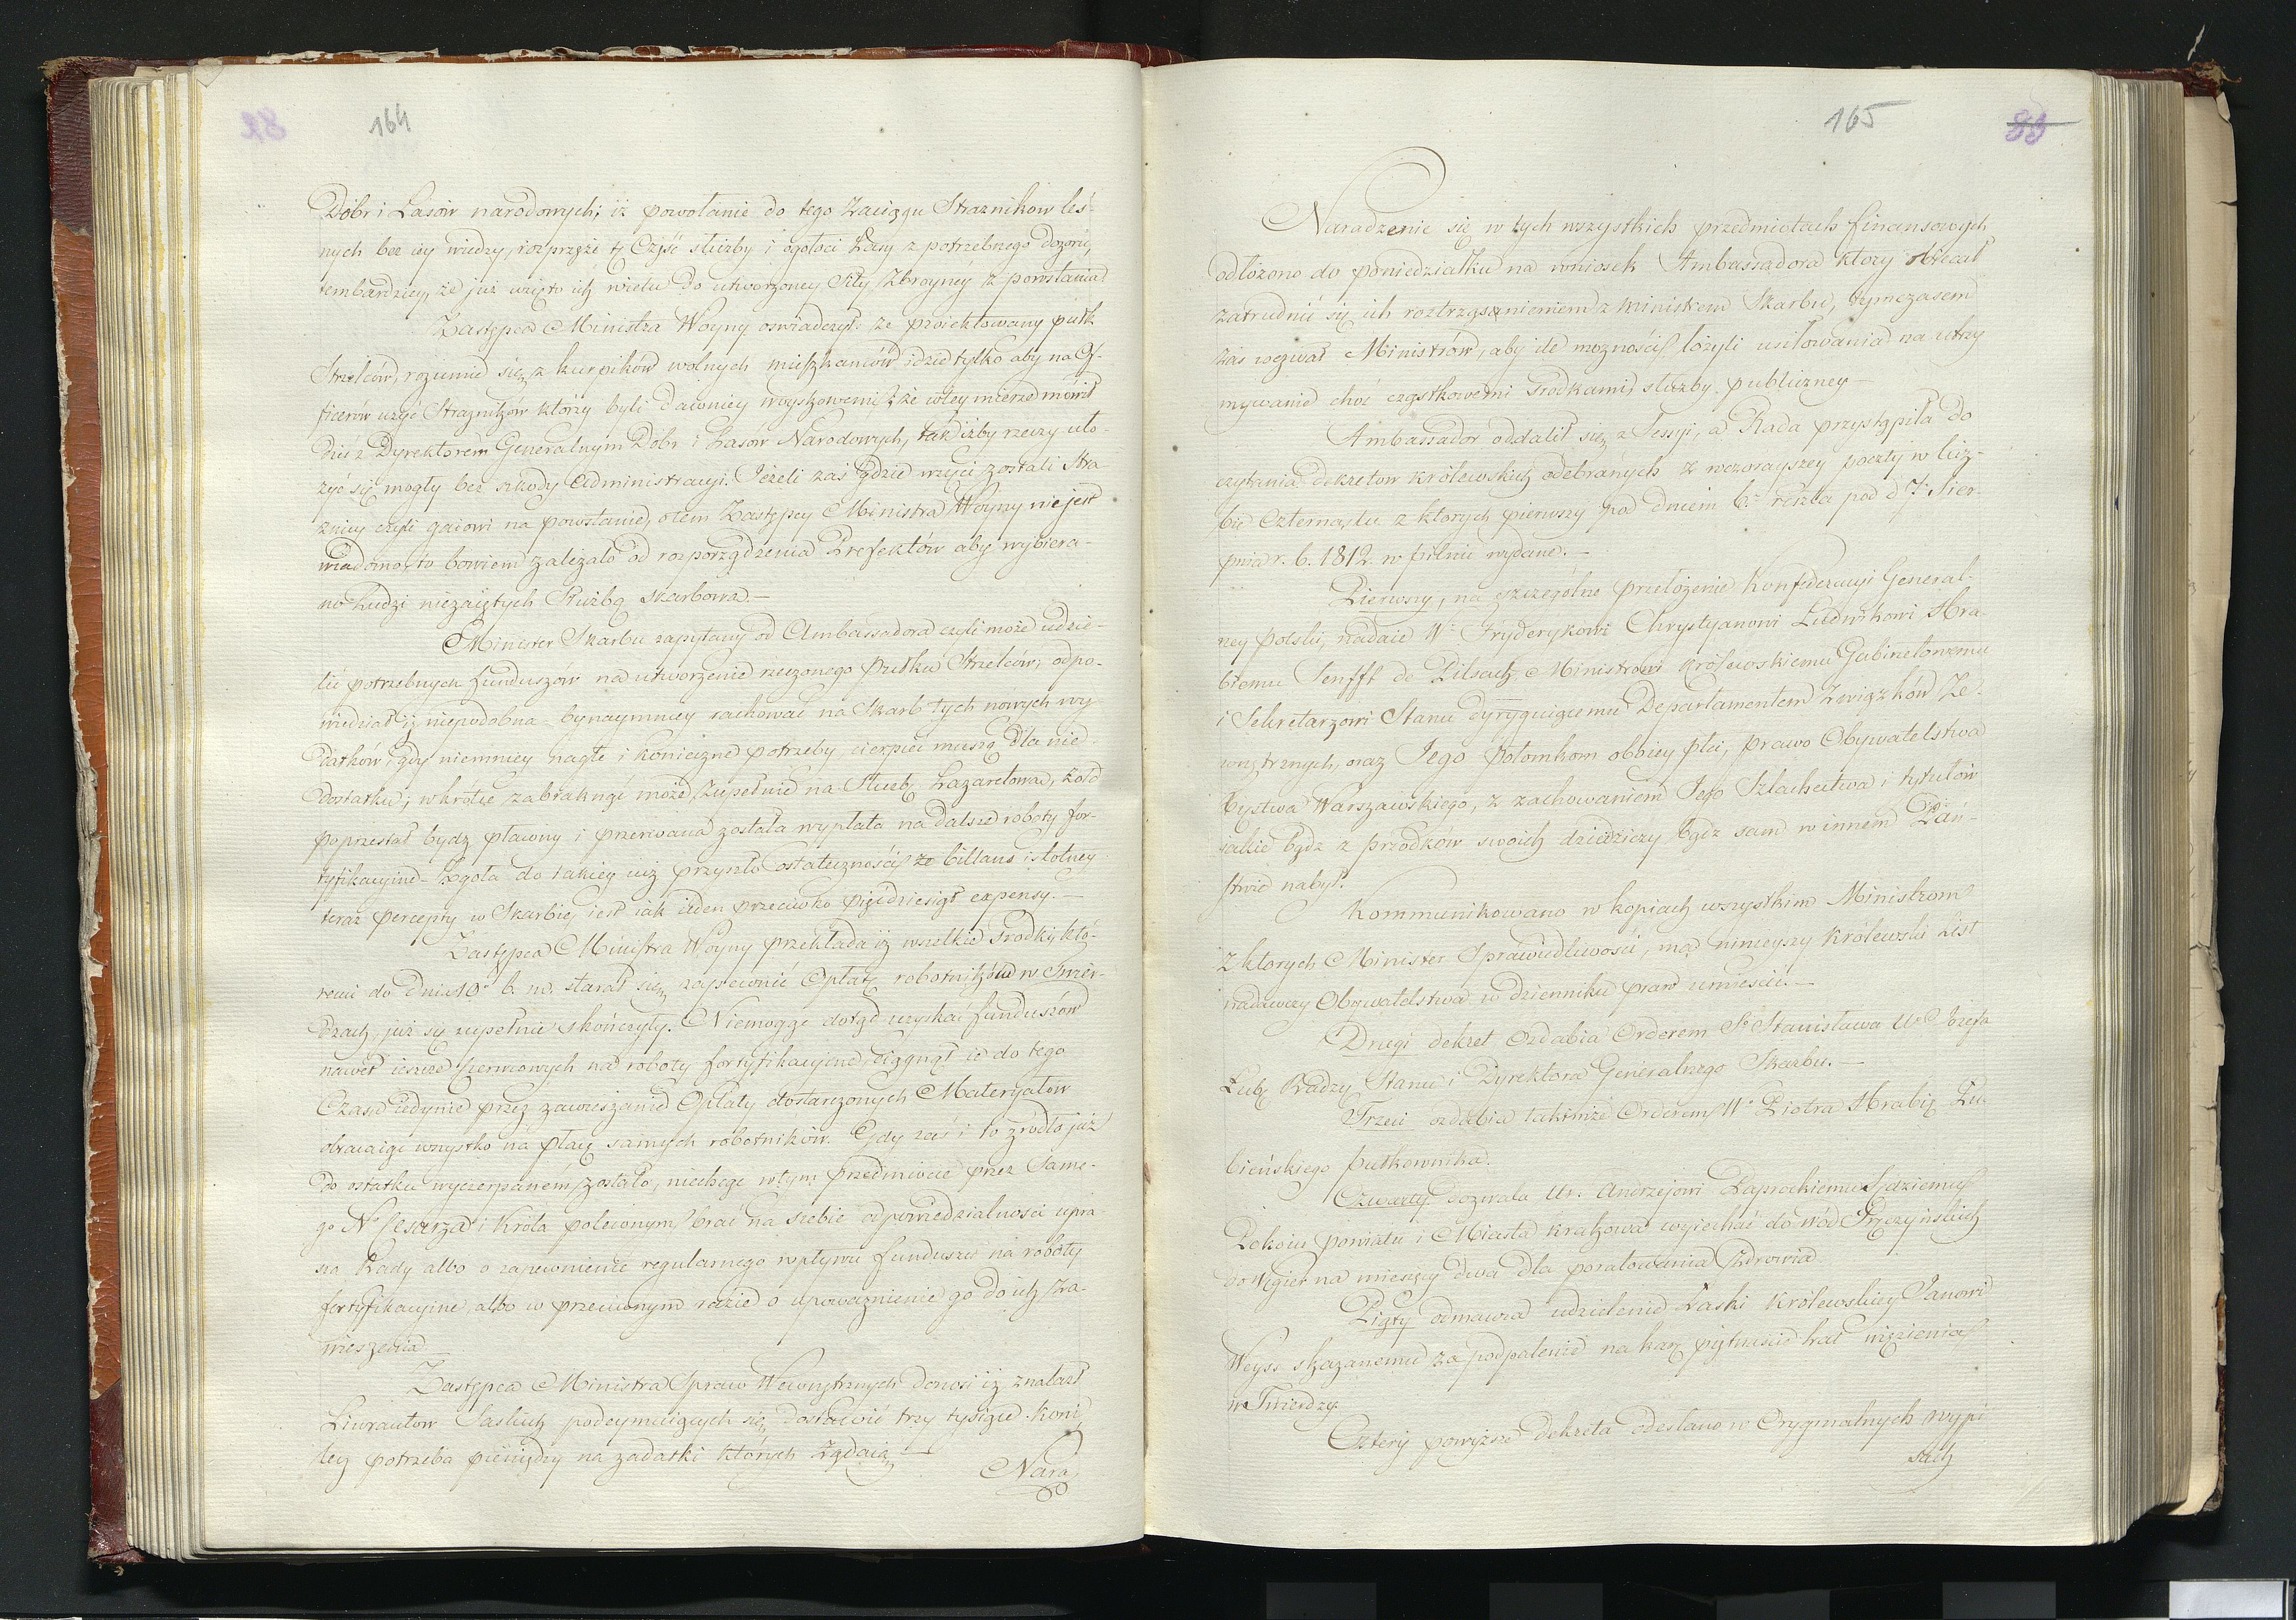 164
Dóbr i Lasów narodowych; iż powołanie do tego Zaciągu Strażnikow leś-
nych bez iey wiedzy, rozprzęże tę Część służby i ogołoci Lasy z potrzebnego dozoru,
tembardziey, że już wzięto ich wielu do utworzoney Siły Zbroyney z powstania.
Zastępca Ministra Woyny oswiadczył: że proiektowany pułk
Strzelców, rozumie się z kurpików wolnych mieszkanców idzie tylko aby na Of-
ficerów użyć Strażników ktorzy byli dawniey woyskowemi; że wtey mierze mówił
Dyrektorem Generalnym Dóbr i Lasów Narodowych, tak iżby rzeczy uło-
żyć się mogły bez szkody Administracyi. Jeżeli zaś gdzie wzięci zostali Stra-
żnicy czyli gaiowi na powstanie, otem Zastępcy Ministra Woyny nie jest
wiadomo, to bowiem zależało od rozporządzenia Prefektów aby wybiera-
no Ludzi niezaiętych Służbą skarbową.—
Minister Skarbu zapytany od Ambassadora czyli może udzie-
lić potrzebnych funduszów na utworzenie rzeczonego Pułku Strzelców; odpo-
wiedział iż niepodobna bynaymniey rachować na Skarb tych nowych wy-
datków; gdy niemniey nagłe i konieczne potrzeby cierpieć muszą dla nie
dostatku; wkrótce zabraknąć może zupełnie na Służbę Lazaretową, żołd
poprzestał bydź płatny i przerwana została wypłata na dalsze roboty for-
tyfikacyine - Zgoła do takiey już przyszło ostateczności że billans istotney
teraz percepty w Skarbie jest iak ieden przeciwko pięćdziesiąt expensy.—
Zastępca Ministra Woyny przekłada iż wszelkie środki, któ-
remi do dnia 10° b. m. starał się zapewnić Opłatę robotników w Twier-
dzach, już się zupełnie skończyły. Niemogąc dotąd uzyskać funduszów
nawet ieszcze Czerwcowych na roboty fortyfikacyine, ciągnął ie do tego
Czasu iedynie przez zawieszanie Opłaty dostarczonych Materyałów
obracaiąc wszystko na płacę samych robotników. Gdy zaś i to zrodło już
do ostatku wyczerpaném zostało, niechcąc wtym przedmiocie przez Same-
go N. Cesarza i Króla poleconym brać na siebie odpowiedzialności upra-
sza Rady albo o zapewnienie regularnego wpływu funduszu na roboty
fortyfikacyine, albo w przeciwnym razie o upoważnienie go do ich za-
wieszenia
Zastępca Ministra Spraw Wewnętrznych donosi iż znalazł
Liwrantow Saskich podeymuiących się dostawić trzy tysiące koni
lecz potrzeba pieniędzy na zadatki których żądaią —
Nara
165
Naradzenie się w tych wszystkich przedmiotach finansowych
odłożono do poniedziałku na wniosek Ambassadora ktory obiecał
zatrudnić się ich roztrząsnieniem z Ministrem Skarbu, tymczasem
zaś wezwał Ministrów, aby ile możności łożyli usiłowania na utrzy
mywanie choć cząstkowemi srodkami, służby publiczney —
Ambassador oddalił się z Sessyi, a Rada przystąpiła do
czytania dekretow królewskich odebranych z wczorayszey poczty w licz-
bie Czternastu z ktorych pierwszy pod dniem 6. reszta pod d. 7. Sier-
pnia r. b. 1812. w pilnie wydane.—
Pierwszy, na szczególne przełożenie Konfederacyi General-
ney Polski, nadaie W. Fryderykowi Chrystyanowi Ludwikowi Hra-
biemu Senfft de Pilsach Ministrowi Królewskiemu Gabinetowemu
i Sekretarzowi Stanu dyryguiącemu Departamentem Związków Ze-
wnętrznych, oraz Jego potomkom oboiey płci, prawo Obywatelstwa
Xięstwa Warszawskiego, z zachowaniem Jego Szlachectwa i tytułów
jakie bądź z przodków swoich dziedziczy bądź sam w innem Pań-
stwie nabył.
Kommunikowano w kopiach wszystkim Ministrom
z ktorych Minister Sprawiedliwosci, ma ninieyszy Królewski List
nadawczy Obywatelstwa w dzienniku praw umieścić.—
Drugi dekret ozdabia Orderem S° Stanisława W° Józefa
Łubę Radzcę Stanu i Dyrektora Generalnego Skarbu.—
Trzeci ozdabia takimże Orderem W° Piotra Hrabię Łu-
bieńskiego Pułkownika.
Czwarty dozwala Ur. Andrzejowi Zaprockiemu Sędziemu
Pokoiu powiatu i Miasta Krakowa wyiechać do wód
do Węgier na miesięcy dwa dla poratowania Zdrowia
Piąty odmawia udzielenie Łaski Królewskiey Janowi
Weyss skazanemu za podpalenie na karę piętnaście lat więzienia
w Twierdzy
Cztery powyższe dekreta odesłano w Oryginalnych wypi
sach